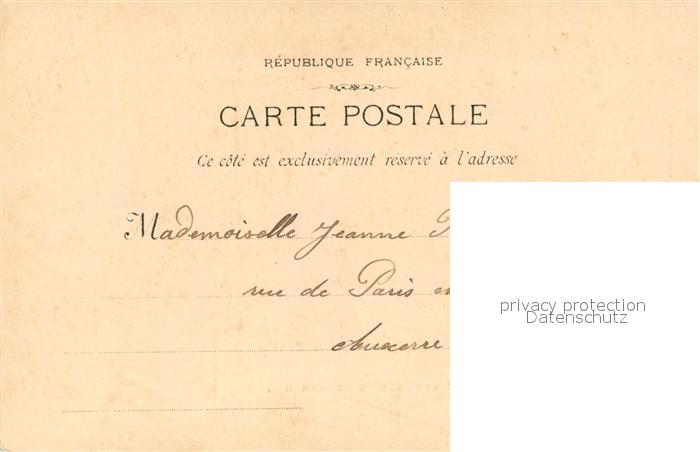 RÉPUBLIQUE FRANÇAISE
CARTE POSTALE
Ce côté est exclusivement réservé à l'adresse
Mademoiselle Jeanne
rue de Paris en
Auxerre
privacy protection
Datenschutz